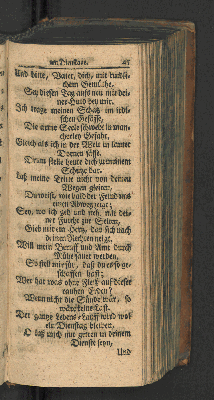 am Dienstage. 45
Und bitte, Vater, dich, mit kindli-
chem Gemüthe,
Sey diesen Tag aufs neu mit dei-
ner Huld bey mir.
Ich trage meinen Schatz im irdi-
schen Gefässe,
Die arme Seele schwebt in man-
cherley Gefahr,
Gleich als ich in der Welt in lauter
Dornen sässe.
Drum stelle heute dich zu meinem
Schutze dar.
Laß meine Tritte nicht von deinen
Wegen gleiten,
Du weist, wie bald der Feind uns
einen Abweg zeigt;
Sey, wo ich geh und steh, mit dei-
ner Furcht zur Seiten,
Gieb mir ein Herz, das sich nach
deinen Rechten neigt.
Will mein Beruff und Amt durch
Müh erhalten werden,
So stell mir für, daß du es so ge-
schaffen hast;
Wer hat was ohne Fleiß auf dieser
rauhen Erden?
Wenn nicht die Sünde wär, so
wär keine Last.
Der ganze Lebens-Lauff wird wol
ein Dienstag bleiben,
O laß mich nur getreu in deinem
Dienste seyn,
Und